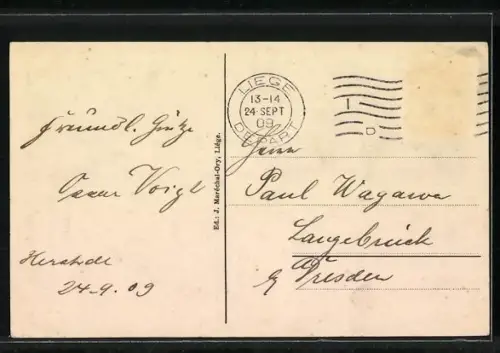 Freundl. Grüße
Oscar Voigt
Herstal
24-9.09
Ed.: J. Maréchal-Ory, Liége.
LIEGE
13-14
24 SEPT
09
DEPART
I
D
Herrn
Paul Wagawa
Langebrück
b/ Dresden